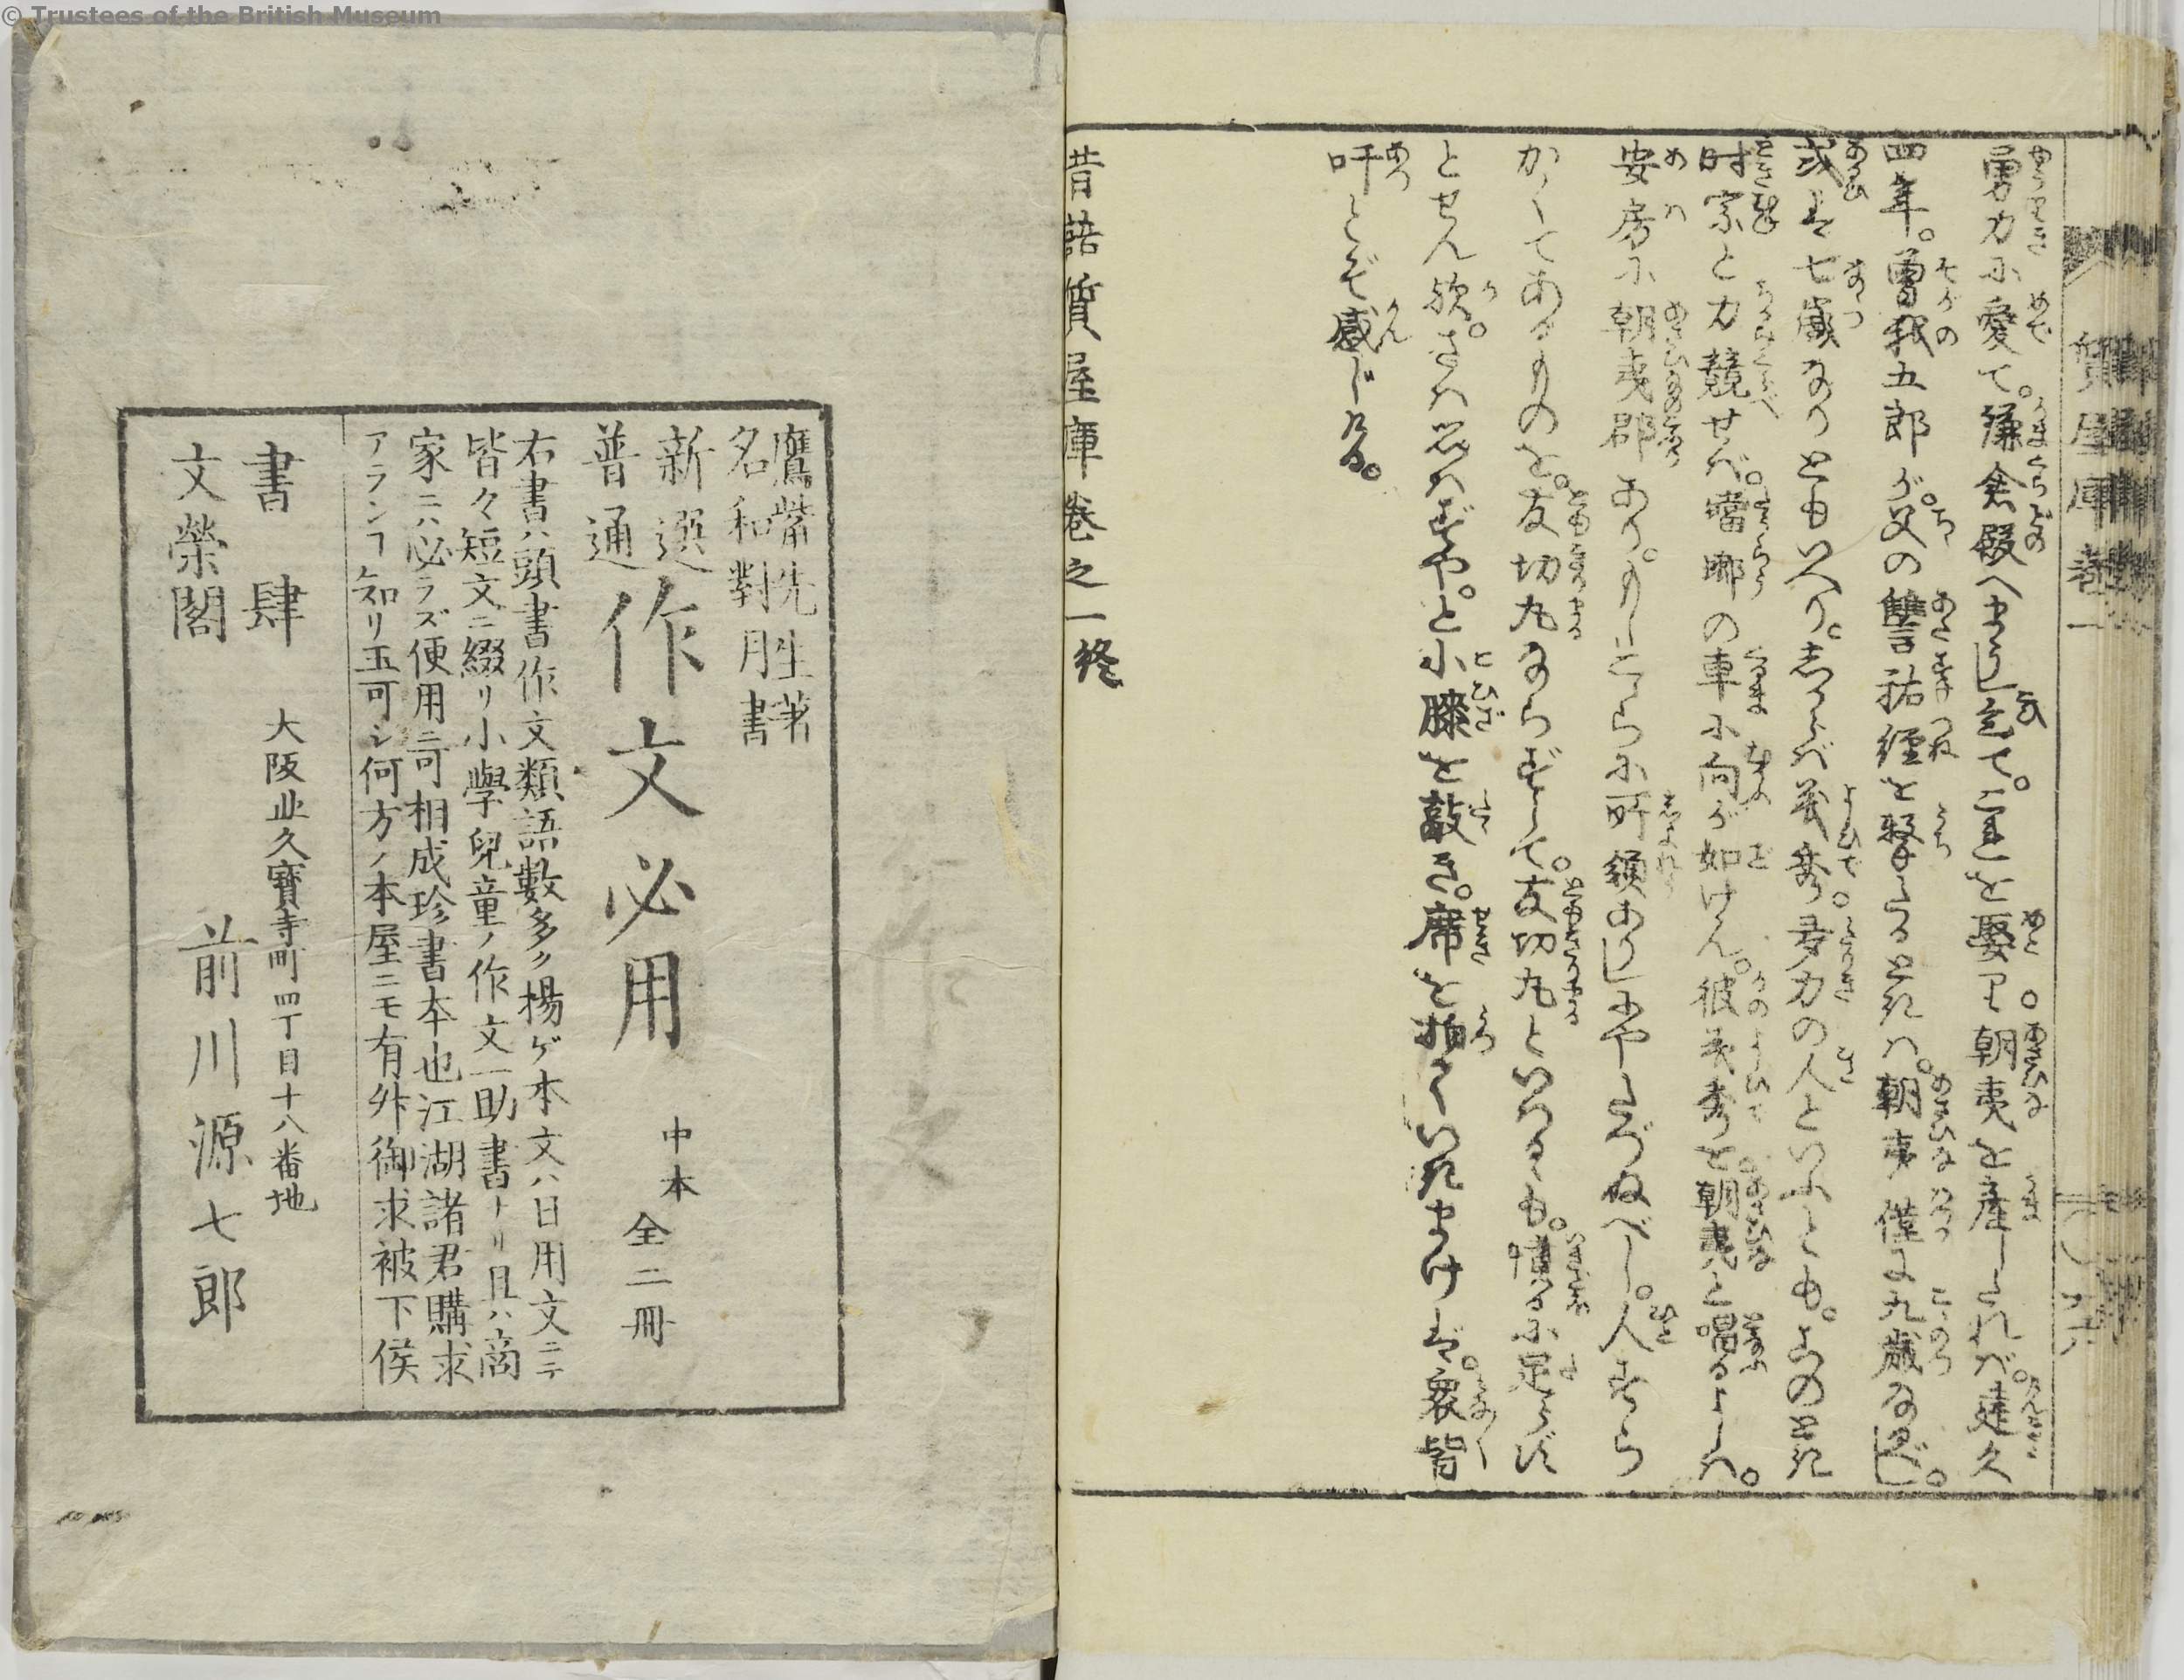 © Trustees of the British Museum
質屋庫巻一
勇力に愛て。鎌倉殿へまうし乞て。これを娶り。朝夷を産したれバ。建久
四年。曽我五郎が。父の讐祐経を撃たるときハ。朝夷僅に九歳なるべし。
或ハ七歳なりともいへり。しからバ義秀。多力の人といふとも。そのとき
時宗と力競せバ。蟷螂の車に向が如けん。彼義秀を。朝夷と唱るよしハ。
安房に朝夷郡あり。もしこゝらに所領ありしにや。たづぬべし。人すら
かくてあるものを。友切丸ならずして。友切丸といはるゝも。憤るに足らず
とせん歟。さハ思ハずや。と小膝を敲き。席を拍ていきまけバ。衆皆
吁とぞ感じける。
昔語質屋庫巻之一終
鷹觜先生著
名和對月書
新選
普通
作文必用
中本
全二冊
右書ハ頭書作文類語數多ク揚ゲ本文ハ日用文ニテ
皆々短文ニ綴リ小學兒童ノ作文一助書ナリ且ハ商
家ニハ必ラズ便用ニ可相成珍書本也江湖諸君購求
アランヿ知リ玉可シ何方ノ本屋ニモ有外御求被下侯
書肆
文榮閣
大阪北久寶寺町四丁目十八番地
前川源七郎